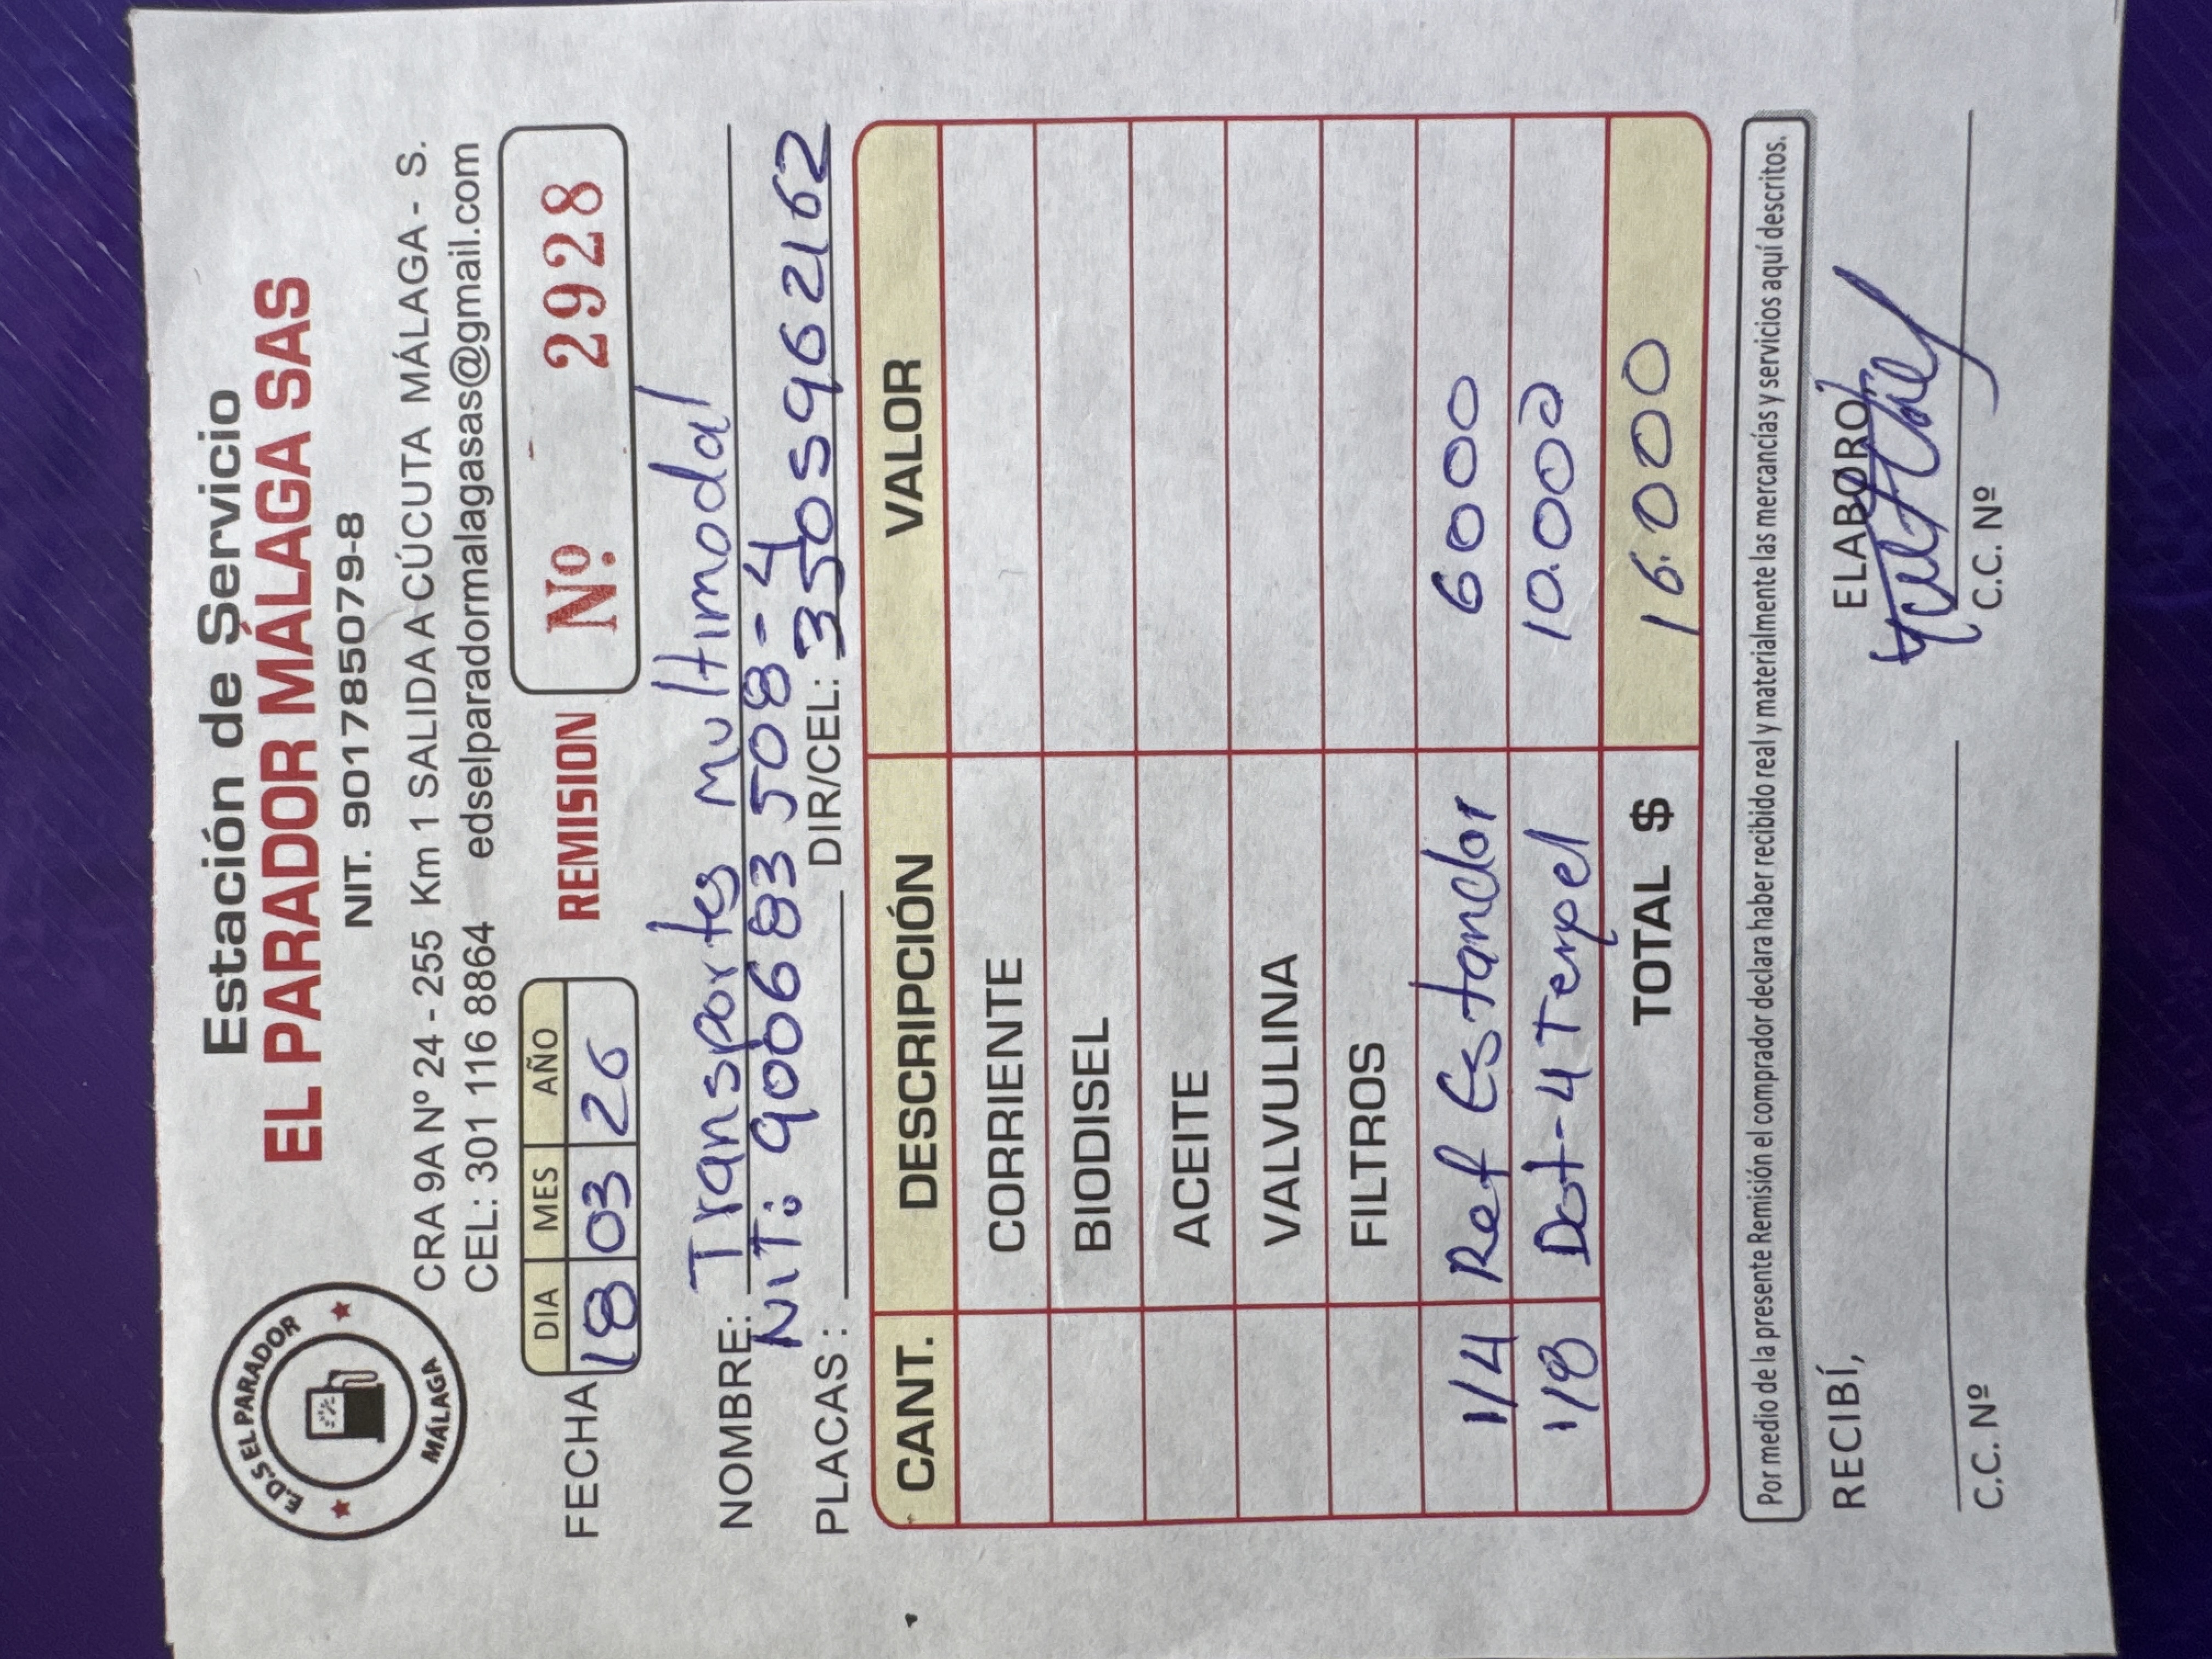 E.D.S EL PARADOR
MÁLAGA
Estación de Servicio
EL PARADOR MÁLAGA SAS
NIT. 901785079-8
CRA 9A Nº 24 - 255 Km 1 SALIDA A CÚCUTA MÁLAGA - S.
CEL: 301 116 8864 edselparadormalagasas@gmail.com
FECHA DIA MES AÑO
18 03 26
REMISION Nº 2928
NOMBRE: Transportes Multimodal
NIT: 900683508-4
PLACAS: DIR/CEL: 3505962162
CANT. DESCRIPCIÓN VALOR
CORRIENTE
BIODISEL
ACEITE
VALVULINA
FILTROS
1/4 Ref Estandar 6000
1/8 Dot-4 Terpel 10.000
TOTAL $ 16.000
Por medio de la presente Remisión el comprador declara haber recibido real y materialmente las mercancías y servicios aquí descritos.
RECIBÍ, ELABORO
C.C. Nº C.C. Nº